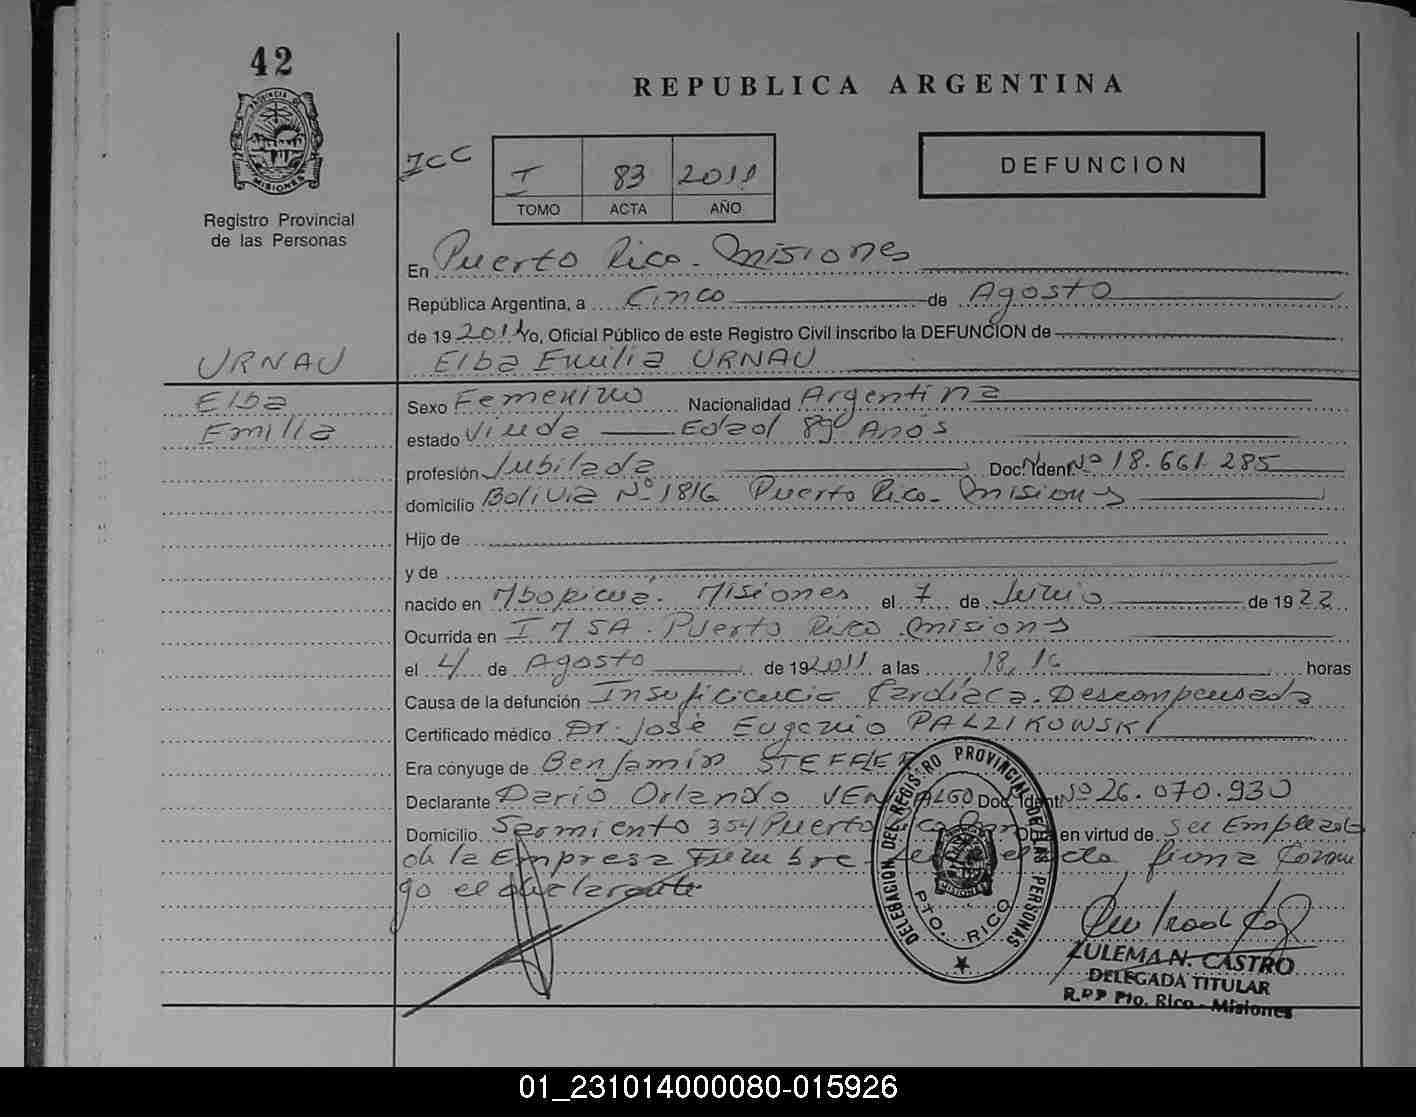 42
REPUBLICA ARGENTINA
PROVINCIA DE
MISIONES
Registro Provincial
de las Personas
ICC
I 83 2011
TOMO ACTA AÑO
DEFUNCION
En Puerto Rico - Misiones
República Argentina, a Cinco de Agosto
de 19 2011 Yo, Oficial Público de este Registro Civil inscribo la DEFUNCION de
URNAU Elba Emilia URNAU
Elba Sexo Femenino Nacionalidad Argentina
Emilia estado Viuda Edad 89 Años
profesión Jubilada Doc. Ident. Nº 18.661.285
domicilio Bolivia Nº 1816 Puerto Rico - Misiones
Hijo de
y de
nacido en Mbopicuá. Misiones el 7 de Junio de 19 22
Ocurrida en IMSA. Puerto Rico Misiones
el 4 de Agosto de 19 2011 a las 18,16 horas
Causa de la defunción Insuficiencia Cardíaca Descompensada
Certificado médico Dr. José Eugenio PALZIKOWSKI
Era cónyuge de Benjamín STEFFLER
Declarante Dario Orlando Doc. Ident. Nº 26.070.930
Domicilio Sarmiento 354 Puerto en virtud de Ser Empleado
de la Empresa firma Conmi
go el declarante
DELEGACION DEL REGISTRO PROVINCIAL DE LAS PERSONAS
PTO. RICO
ZULEMA N. CASTRO
DELEGADA TITULAR
R.P.P Pto. Rico - Misiones
01_231014000080-015926